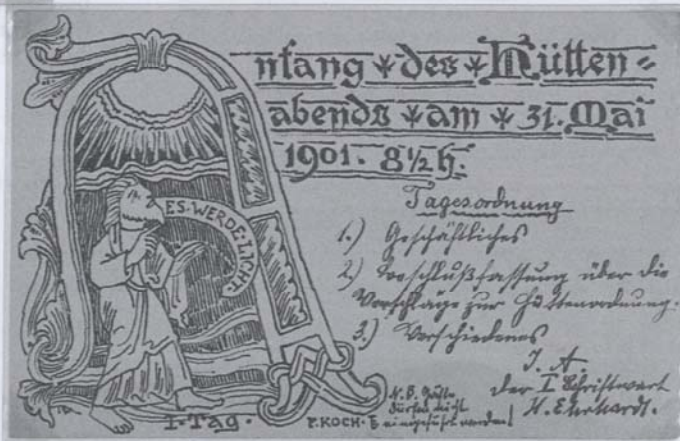 Anfang des Hütten=
abends am 31. Mai
1901. 8½ h.
ES·WERDE·LICHT·
Tagesordnung
1.) Geschäftliches
2.) Beschlußfassung über die
Vorschläge zur Hüttenordnung.
3.) Verschiedenes
I. A.
Der I. Schriftwart
H. Ehrhardt.
N.B. Gäste
dürfen nicht
eingeführt werden!
I. Tag.
P. KOCH.